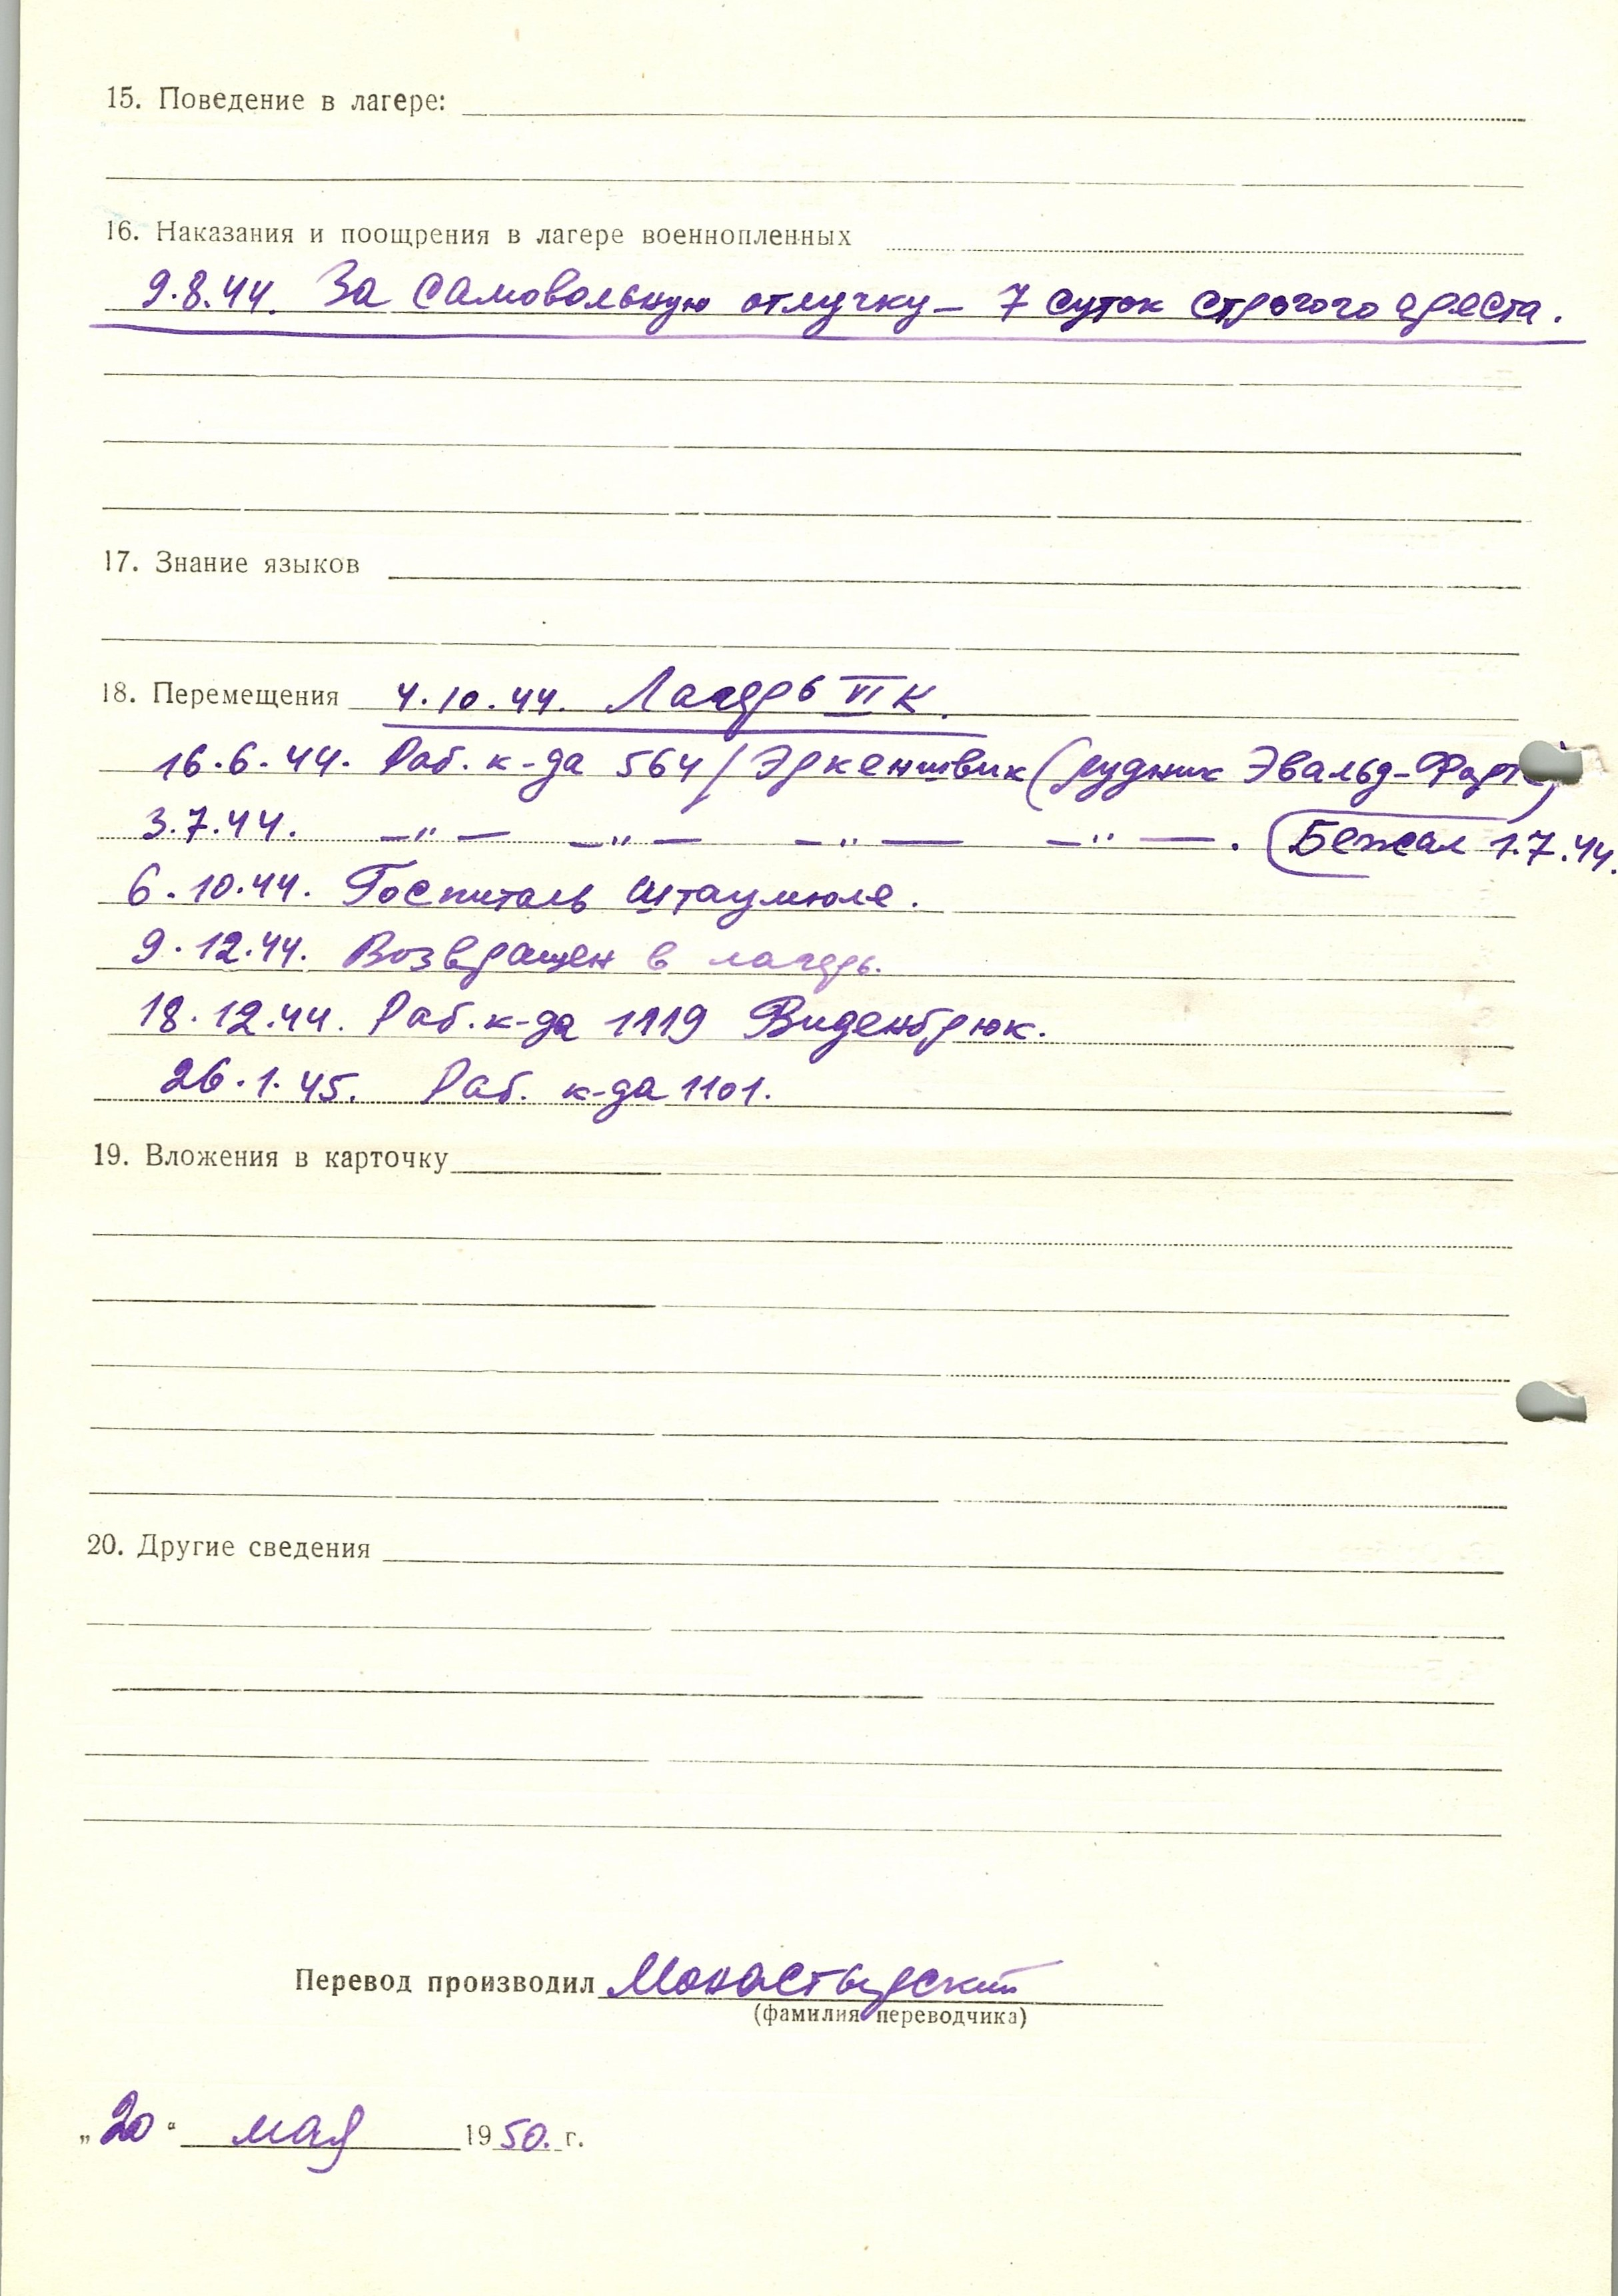 15. Поведение в лагере:
16. Наказания и поощрения в лагере военнопленных
9.8.44. За самовольную отлучку – 7 суток строгого ареста.
17. Знание языков
18. Перемещения 4.10.44. Лагерь VI К.
16.6.44. Раб. к-да 564 / Эркеншвик (рудник Эвальд-Форт
3.7.44. –"– –"– –"– –"– . Бежал 1.7.44.
6.10.44. Госпиталь Штаумюле.
9.12.44. Возвращен в лагерь.
18.12.44. Раб. к-да 1119 Виденбрюк.
26.1.45. Раб. к-да 1101.
19. Вложения в карточку
20. Другие сведения
Перевод производил Монастырский
(фамилия переводчика)
„20" мая 1950. г.